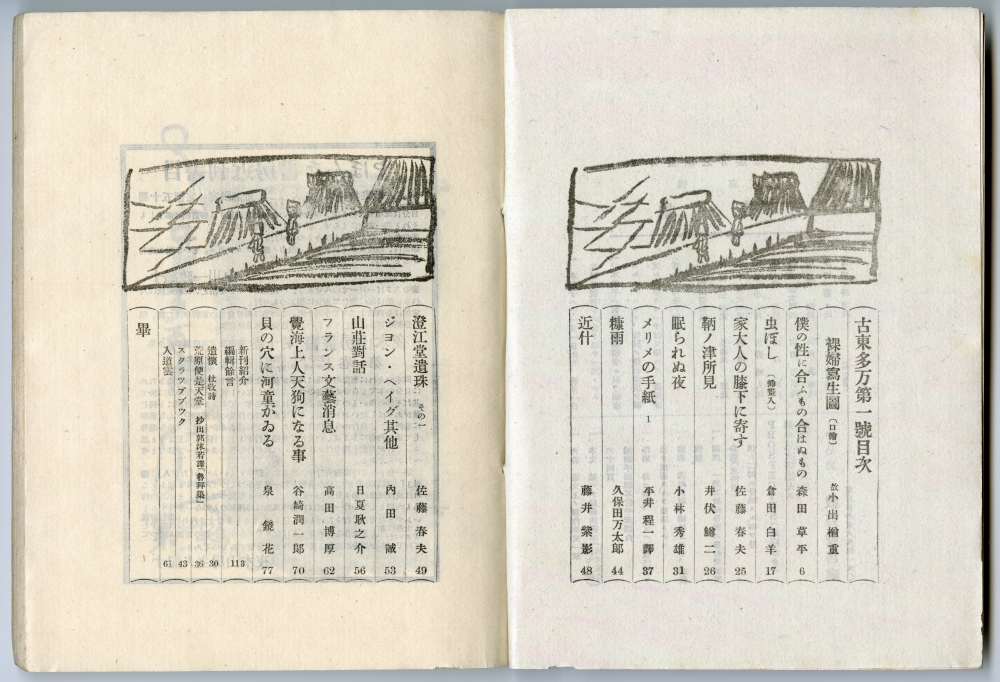 古東多万第一號目次
裸婦寫生圖〔口繪〕 故 小出楢重
僕の性に合ふもの合はぬもの 森田草平 6
虫ぼし〔挿畫入〕 倉田白羊 17
家大人の膝下に寄す 佐藤春夫 25
鞆ノ津所見 井伏鱒二 26
眠られぬ夜 小林秀雄 31
メリメの手紙 1 平井程一譯 37
糠雨 久保田万太郎 44
近什 藤井紫影 48
澄江堂遺珠 その一 佐藤春夫 49
ジヨン・ヘイグ其他 內田誠 53
山莊對話 日夏耿之介 56
フランス文藝消息 高田博厚 62
覺海上人天狗になる事 谷崎潤一郎 70
貝の穴に河童がゐる 泉鏡花 77
新刊紹介
編輯餘言 113
遣懷 杜牧詩 30
荒原便是天堂 抄出郭沫若譯「魯拜集」 36
スクラツプブツク 43
入道雲 61
畢